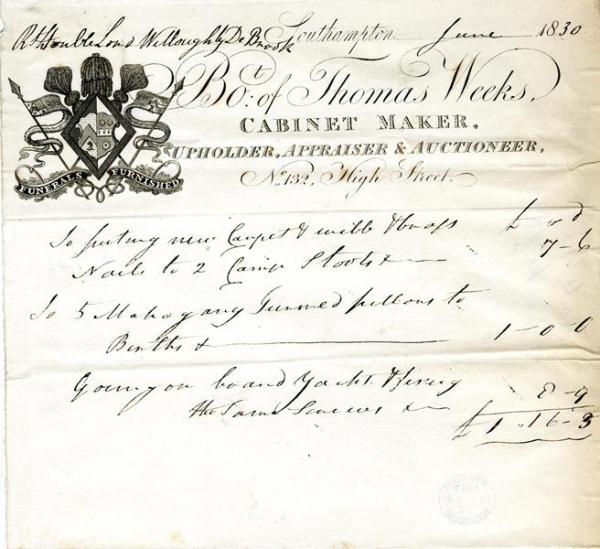 Rt Honble Lord Willoughby De Brook
Southampton June 1830
Bot. of Thomas Weeks,
CABINET MAKER,
UPHOLDER, APPRAISER & AUCTIONEER,
No. 132, High Street.
FUNERALS FURNISHED
£ s d
To putting new Carpet & webb & brass
Nails to 2 Camp Stools & 7-6
To 5 Mahogany Turned pillars to
Births & 1-0-0
Going on board Yacht & fixing
the Same Screws & 8-9
£ 1-16-3